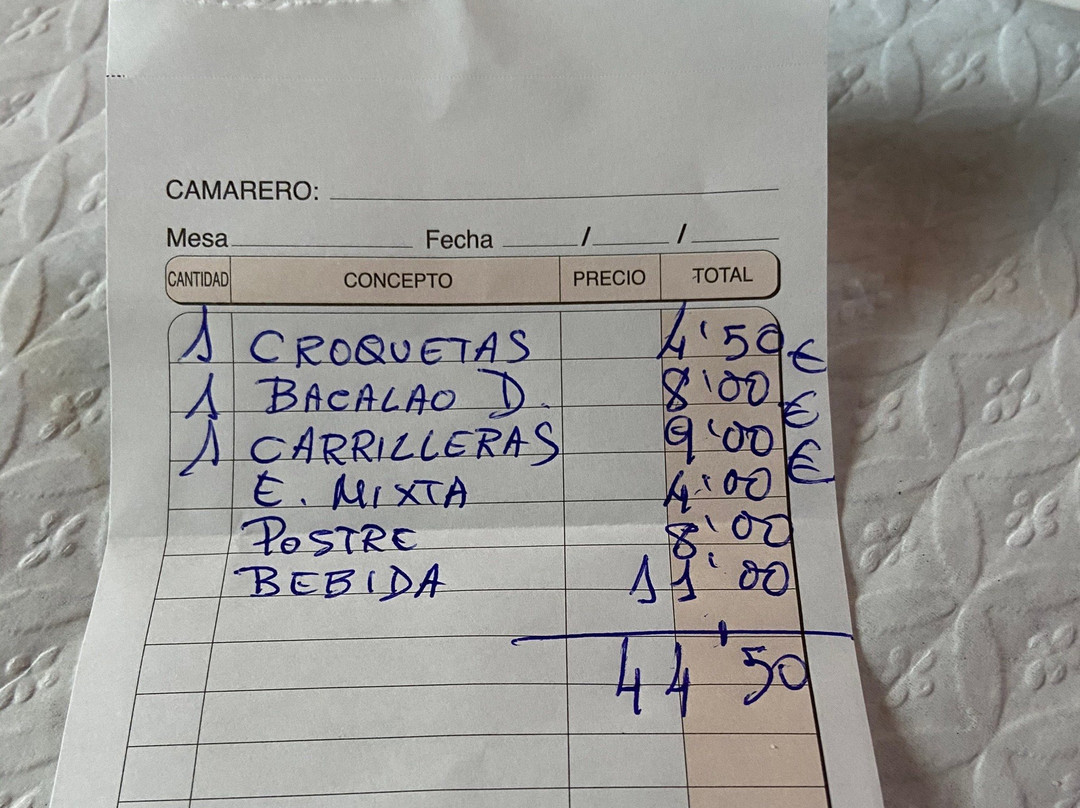 CAMARERO:
Mesa Fecha / /
CANTIDAD CONCEPTO PRECIO TOTAL
1 CROQUETAS 4'50 €
1 BACALAO D. 8'00 €
1 CARRILLERAS 9'00 €
E. MIXTA 4'00
POSTRE 8'00
BEBIDA 11'00
44'50